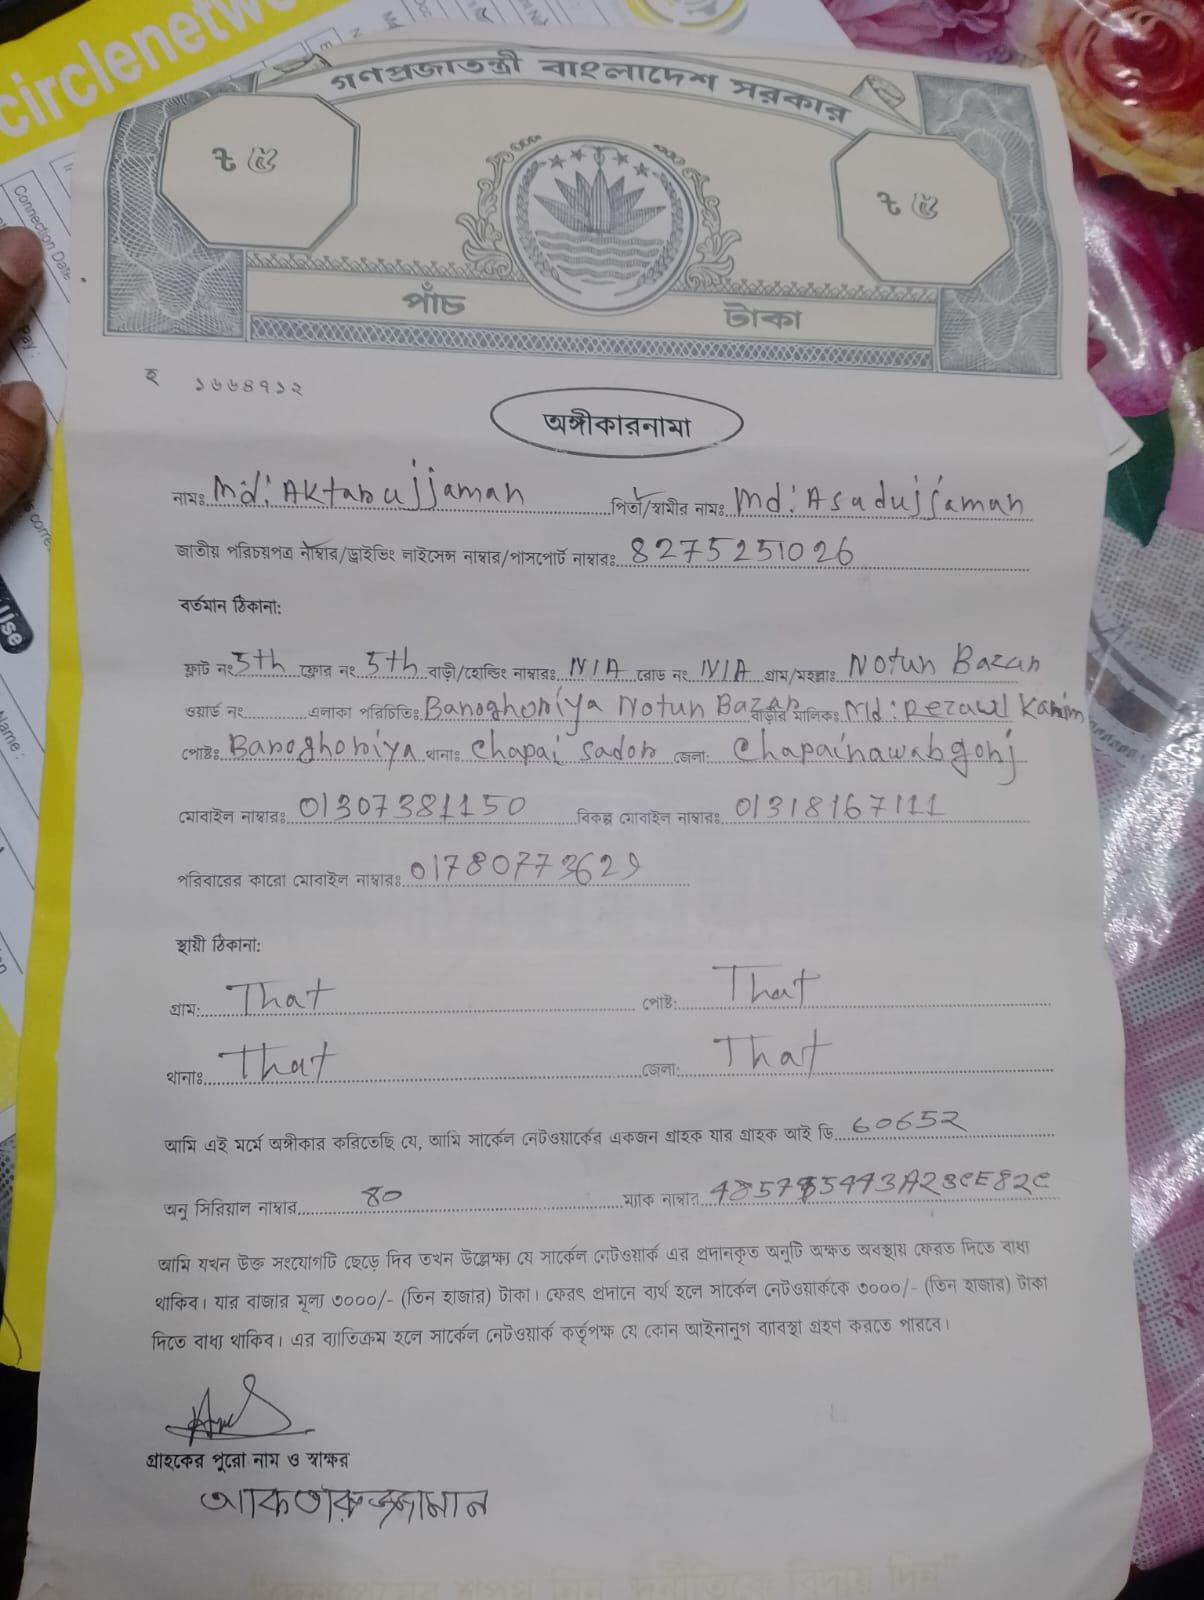 circlenetw
Connection Date
Pay :
Use
Name :
গণপ্রজাতন্ত্রী বাংলাদেশ সরকার
৳ ৫ ৳ ৫
পাঁচ টাকা
হ ১৬৬৪৭১২
অঙ্গীকারনামা
নামঃ Md: Aktarujjaman পিতা/স্বামীর নামঃ Md: Asadujjaman
জাতীয় পরিচয়পত্র নাম্বার/ড্রাইভিং লাইসেন্স নাম্বার/পাসপোর্ট নাম্বারঃ 8275251026
বর্তমান ঠিকানা:
ফ্লাট নং 5th ফ্লোর নং 5th বাড়ী/হোল্ডিং নাম্বারঃ N/A রোড নং N/A গ্রাম/মহল্লাঃ Notun Bazar
ওয়ার্ড নং এলাকা পরিচিতিঃ Baroghoriya Notun Bazar বাড়ীর মালিকঃ Md: Rezaul Karim
পোষ্টঃ Baroghoriya থানাঃ Chapai Sador জেলা: Chapainawabgonj
মোবাইল নাম্বারঃ 01307381150 বিকল্প মোবাইল নাম্বারঃ 01318167111
পরিবারের কারো মোবাইল নাম্বারঃ 01780773629
স্থায়ী ঠিকানা:
গ্রাম: That পোষ্ট: That
থানাঃ That জেলা: That
আমি এই মর্মে অঙ্গীকার করিতেছি যে, আমি সার্কেল নেটওয়ার্কের একজন গ্রাহক যার গ্রাহক আই ডি 60652
অনু সিরিয়াল নাম্বার 80 ম্যাক নাম্বার
আমি যখন উক্ত সংযোগটি ছেড়ে দিব তখন উল্লেক্ষ্য যে সার্কেল নেটওয়ার্ক এর প্রদানকৃত অনুটি অক্ষত অবস্থায় ফেরত দিতে বাধ্য
থাকিব। যার বাজার মূল্য ৩০০০/- (তিন হাজার) টাকা। ফেরৎ প্রদানে ব্যর্থ হলে সার্কেল নেটওয়ার্ককে ৩০০০/- (তিন হাজার) টাকা
দিতে বাধ্য থাকিব। এর ব্যাতিক্রম হলে সার্কেল নেটওয়ার্ক কর্তৃপক্ষ যে কোন আইনানুগ ব্যাবস্থা গ্রহণ করতে পারবে।
গ্রাহকের পুরো নাম ও স্বাক্ষর
আকতারুজ্জামান
"দেশপ্রেমের শপথ নিন, দুর্নীতিকে বিদায় দিন"